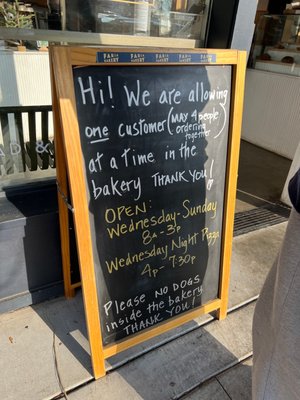 PARIS BAKERY PARIS BAKERY PARIS BAKERY PARIS BAKERY
Hi! We are allowing
one customer (MAX 4 people ordering together)
at a time in the
bakery THANK YOU!
OPEN:
Wednesday-Sunday
8A-3P
Wednesday Night Pizza
4P-7:30P
Please NO DOGS
inside the bakery.
THANK YOU!